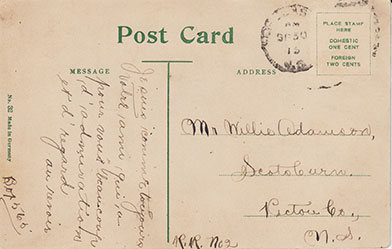 Post Card
MESSAGE
ADDRESS
PLACE STAMP
HERE
DOMESTIC
ONE CENT
FOREIGN
TWO CENTS
AM
SP 30
15
N.S.
No. 32 Made in Germany
Je suis comme toujours
Notre ami qui a
pour vous beaucoup
d'admiration
et d'regard
au revoir
Box 65
Mr Willie Adamson,
Pictou Co.,
N.S.
R.R. No 2